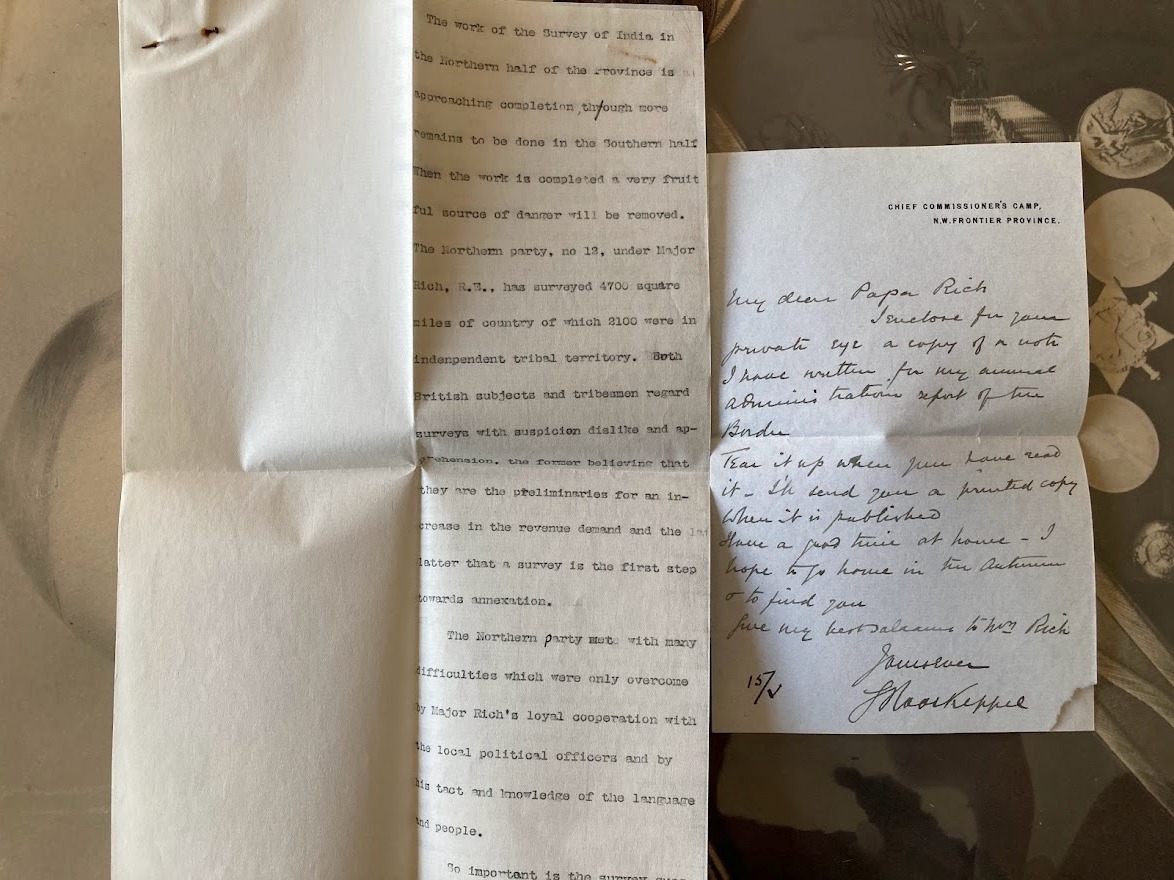 The work of the Survey of India in
the Northern half of the Province is
approaching completion, though more
remains to be done in the Southern half
When the work is completed a very fruit
ful source of danger will be removed.
The Northern party, no 12, under Major
Rich, R.E., has surveyed 4700 square
miles of country of which 2100 were in
indenpendent tribal territory. Both
British subjects and tribesmen regard
surveys with suspicion dislike and ap-
prehension. the former believing that
they are the preliminaries for an in-
crease in the revenue demand and the
latter that a survey is the first step
towards annexation.
The Northern party met with many
difficulties which were only overcome
by Major Rich's loyal cooperation with
the local political officers and by
his tact and knowledge of the language
and people.
So important is the survey
CHIEF COMMISSIONER'S CAMP,
N.W. FRONTIER PROVINCE.
My dear Papa Rich
I enclose for your
private eye a copy of a note
I have written for my annual
administration report of the
Border
Tear it up when you have read
it - I'll send you a printed copy
when it is published
Have a good time at home - I
hope to go home in the Autumn
& to find you
Give my best salaams to Mrs Rich
Yours ever
G Roos Keppel
15/